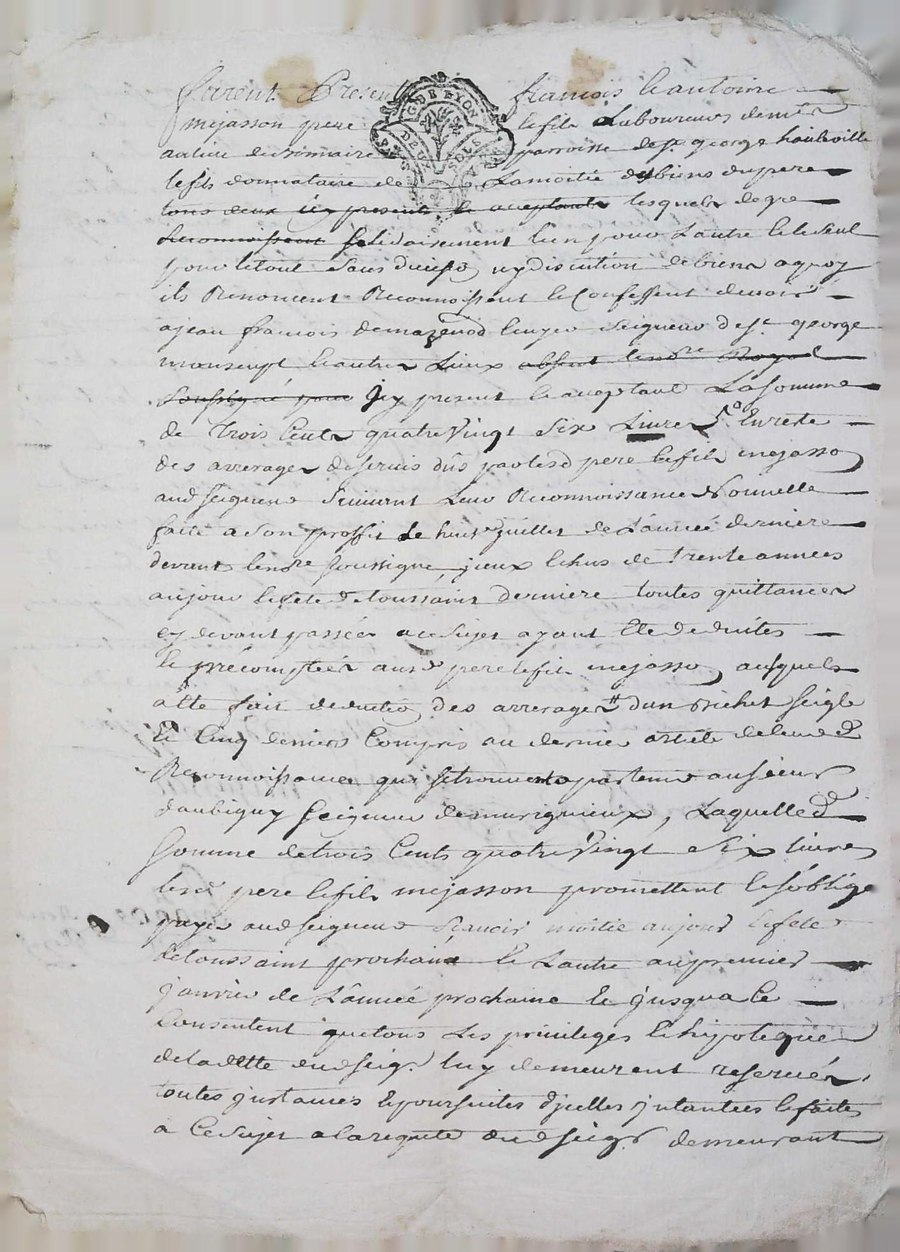 furent Presents françois & antoine
mejasson pere & le fils Laboureurs demts
GDE LYON
DEUX SOLS
au lieu de simaire parroisse de st george hauteville
le fils donnataire de La moitié des biens du pere
tous deux icy presents & acceptants lesquels de gre
Reconnoissent solidairement lun pour Lautre & le seul
pour le tout sans division ny discution de biens a quoy
ils Renoncent Reconnoissent & Confessent devoir
a jean françois demazenod Ecuyer Seigneur de st george
& autres Lieux absent le nore Royal
soussigné pour icy present & acceptant La somme
de Trois Cents quatre Vingt six Livres En reste
des arrerages de servis dûs par lesd pere & le fils mejasson
aud seigneur suivant Leur Reconnoissance Nouvelle
faite a son proffit Le huit juillet de Lannée derniere
devant le nore soussigné iceux Echus de trente années
au jour & fete de toussaint derniere toutes quittances
cy devant passées a ce sujet ayant Eté deduites
& précomptées ausd pere & fils mejasson ausquels
a eté fait deduction des arrerages dun bichet seigle
Et Cinq deniers Compris au dernier article de leurd
Reconnoissance qui se trouve apartenir au sieur
daubigny seigneur de murignieux, Laquelle d
somme de trois Cents quatre Vingt six livres
lesd pere & le fils mejasson promettent & soblige
payer aud seigneur scavoir moitié au jour & fete
de toussaint prochaine & Lautre au premier
janvier de Lannée prochaine Et jusqua ce
Consentent que tous Les privileges & hipoteques
de la dette dud seigr luy demeurent reservés
toutes instances & poursuites dicelles intantées & faites
a Ce sujet a la requete dud seigr demeurant